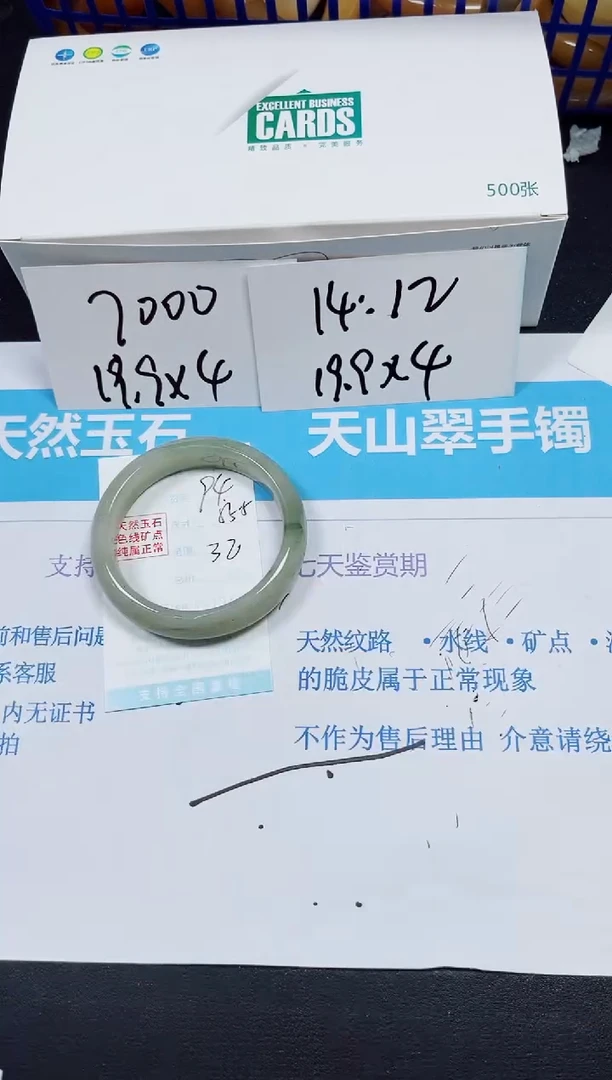 EXCELLENT BUSINESS
CARDS
精致品质 × 完美服务
500张
7000
19.9x4
14:12
19.9x4
天然玉石
天山翠手镯
94
32
天然玉石
色线矿点
纯属正常
支持
七天鉴赏期
前和售后问题
系客服
内无证书
拍
天然纹路 ·水线 ·矿点
的脆皮属于正常现象
不作为售后理由 介意请绕